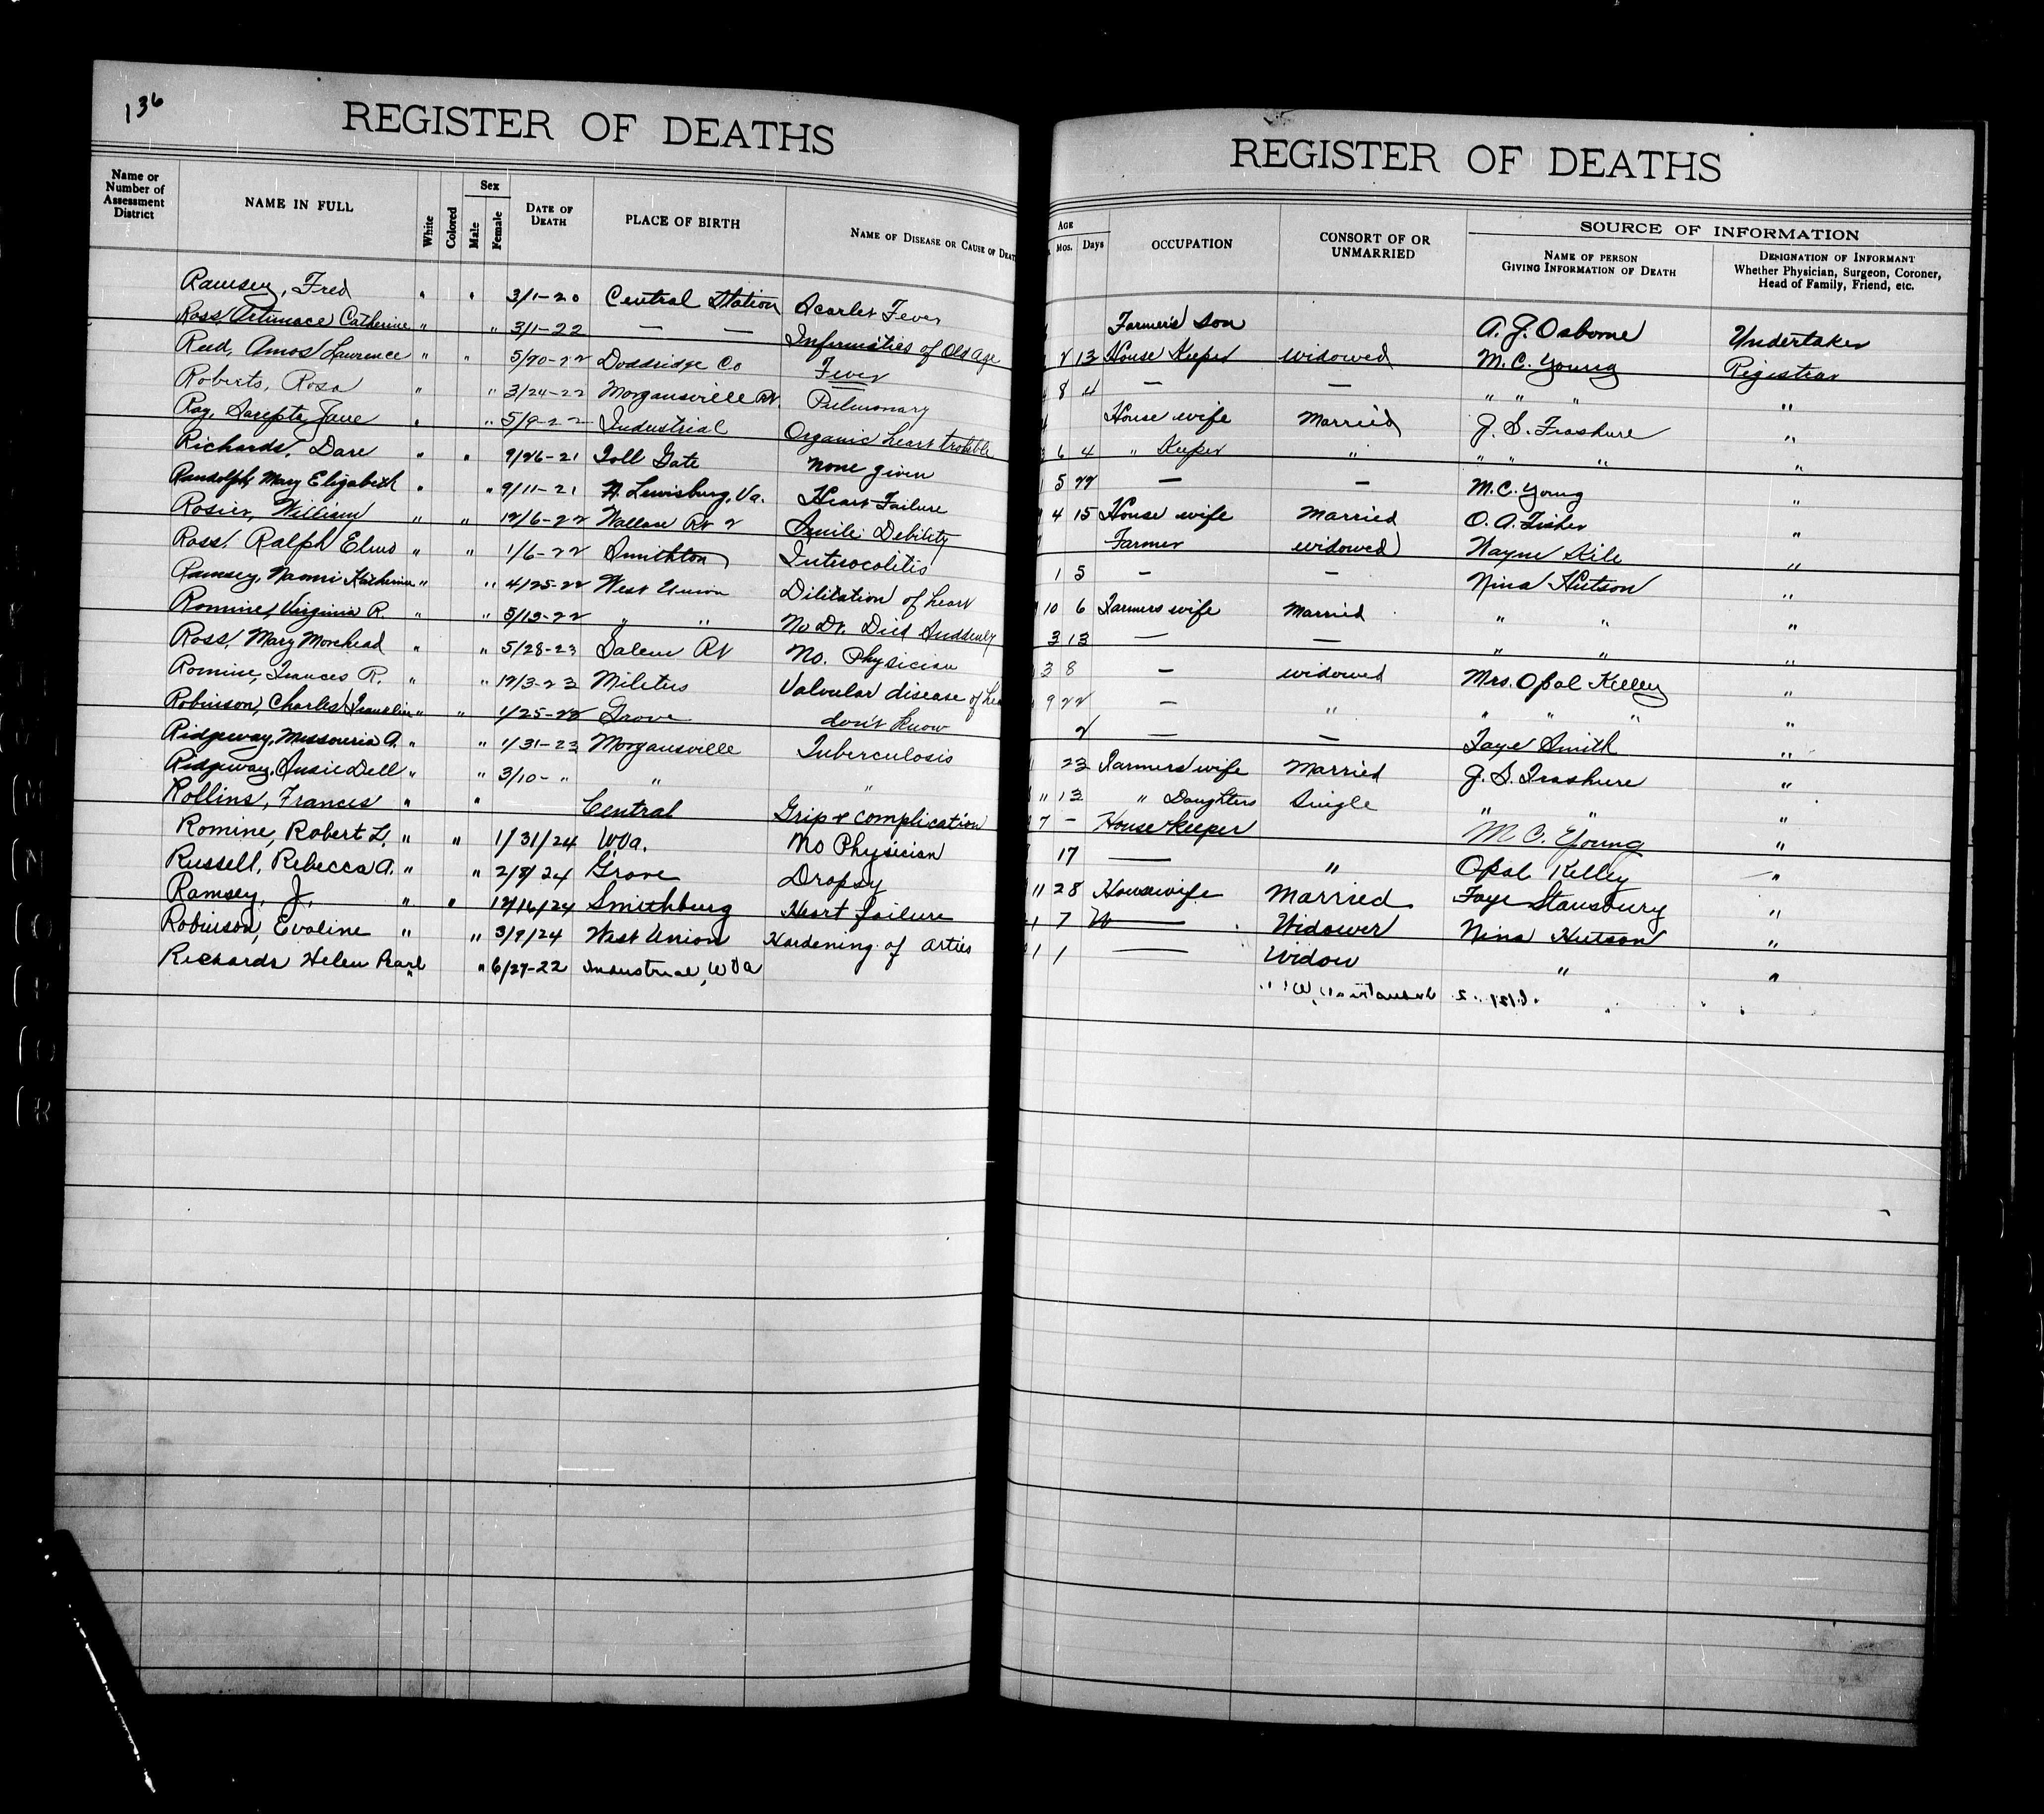 136
REGISTER OF DEATHS
Name or Number of Assessment District
NAME IN FULL
White
Colored
Sex
Male
Female
DATE OF DEATH
PLACE OF BIRTH
NAME OF DISEASE OR CAUSE OF DEAT
Ramsey, Fred " " 3/1-20 Central Station Scarlet Fever
Ross, Artimace Catherine " " 3/1-22 — — Infirmities of Old Age
Reed, Amos Lawrence " " 5/20-22 Doddridge Co Fever
Roberts, Rosa " " 3/24-22 Morgansville Rt. Pulmonary
Ray, Sarepta Jane " " 5/9-22 Industrial Organic heart trouble
Richards, Dare " " 9/26-21 Toll Gate None given
Randolph, Mary Elizabeth " " 9/11-21 N. Lewisburg, Va. Heart Failure
Rosier, William " " 12/6-22 Wallace Rt 2 Senile Debility
Ross, Ralph Elmo " " 1/6-22 Smithton Enterocolitis
Ramsey, Naomi Katherine " " 4/25-22 West Union Dilitation of heart
Romine, Virginia R. " " 5/13-22 " " No Dr. Died Suddenly
Ross, Mary Morehead " " 5/28-23 Salem Rt No. Physician
Romine, Frances R. " " 12/3-23 Miletus Valvular disease of hea
Robinson, Charles Franklin " " 1/25-22 Grove don't know
Ridgeway, Missouria A. " " 1/31-23 Morgansville Tuberculosis
Ridgeway, Susie Dell " " 3/10- " " "
Rollins, Frances " " Central Grip & complication
Romine, Robert L. " " 1/31/24 WVa. No Physician
Russell, Rebecca A. " " 2/8/24 Grove Dropsy
Ramsey, J. " " 12/16/24 Smithburg Heart failure
Robinson, Evaline " " 3/9/24 West Union Hardening of arties
Richards Helen Pearl " " 6/27-22 Industrial, WVa
REGISTER OF DEATHS
AGE
Mos.
Days
OCCUPATION
CONSORT OF OR UNMARRIED
SOURCE OF INFORMATION
NAME OF PERSON GIVING INFORMATION OF DEATH
DESIGNATION OF INFORMANT Whether Physician, Surgeon, Coroner, Head of Family, Friend, etc.
Farmer's son A. J. Osborne Undertaker
2 13 House Keeper widowed M. C. Young Registrar
8 4 — — " " " "
House wife Married J. S. Trashure "
6 4 " Keeper " " " " "
5 22 — — M. C. Young "
4 15 House wife Married O. A. Fisher "
Farmer widowed Wayne Aile "
1 5 — — Nina Hutson "
10 6 Farmers wife Married " " "
3 13 — — " " "
3 8 — widowed Mrs. Opal Kelley "
9 22 — " " " " "
2 — — Faye Smith "
23 Farmers wife Married J. S. Trashure "
" 13 " Daughters Single " " "
7 — Housekeeper M C. Young "
17 — " Opal Kelley "
11 28 Housewife Married Faye Stansbury "
1 7 — Widower Nina Hutson "
1 1 — Widow " "